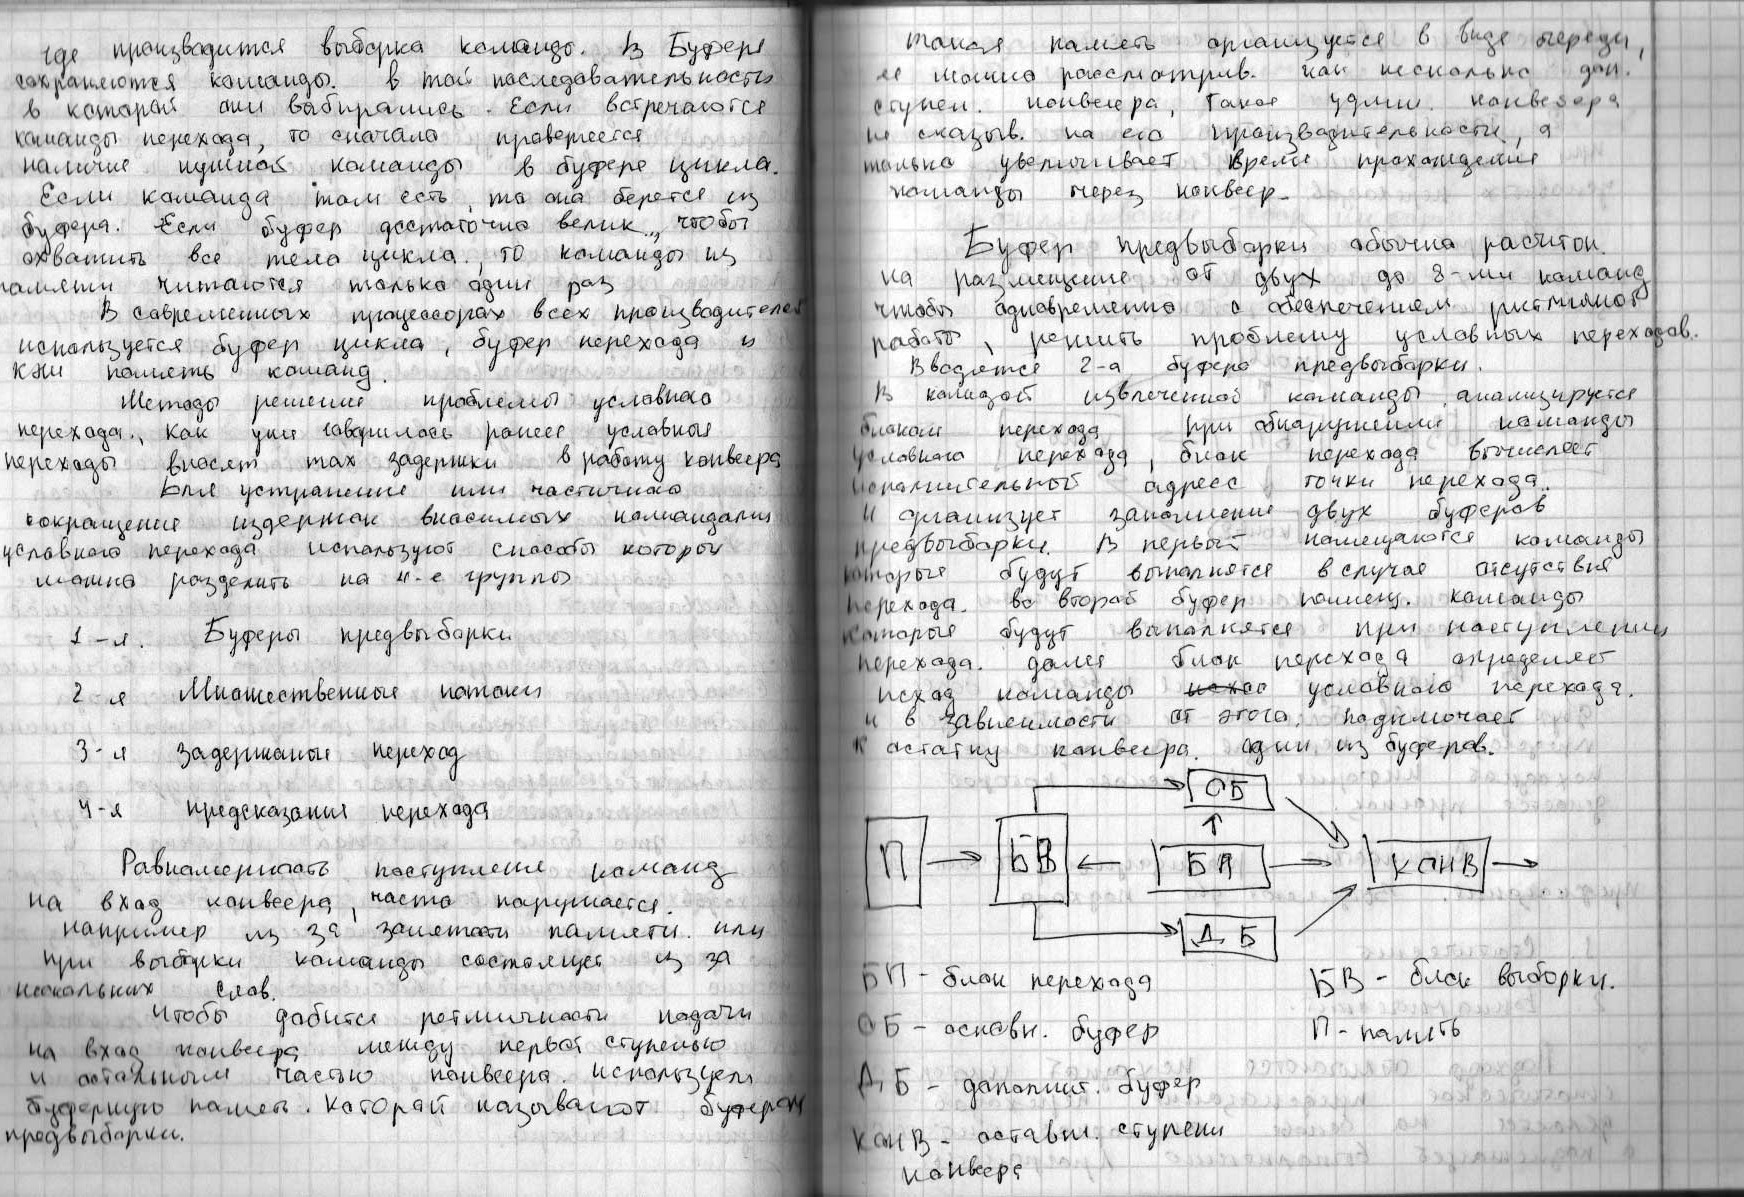 где производится выборка команды. В Буфере
сохраняются команды. в той последовательности
в которой они выбирались. Если встречаются
команды перехода, то сначала проверяется
наличие нужной команды в буфере цикла.
Если команда там есть, то она берется из
буфера. Если буфер достаточно велик, чтобы
охватить все тело цикла, то команды из
памяти читаются только один раз
В современных процессорах всех производителей
используется буфер цикла, буфер перехода и
кэш память команд.
Методы решение проблемы условного
перехода. как уже говорилось ранее условные
переходы вносят max задержки в работу конвеера
Для устранение или частичного
сокращение издержок вносимых командами
условного перехода используют способы которы
можно разделить на 4-е группы
1-я. Буферы предвыборки
2-я Множественные потоки
3-я Задержаные переход
4-я предсказание перехода
Равномерность поступление команд
на вход конвеера, часто нарушается.
например из за занятости памяти. или
при выборки команды состоящие из за
нескольких слов.
Чтобы добится ретмичности подачи
на вход конвеера между первой ступенью
и остальным частью конвеера. используем
буферную память. которой называют буфером
предвыборки.
такая память организуется в виде очереди,
ее можно рассматрив. как несколько доп.
ступен. конвеера, такое удлин. конвеера
не сказыв. на его производительности, а
только увеличивает время прохождение
команды через конвеер.
Буфер предвыборки обычно расчитон.
на размещение от двух до 8-ми команд
чтобы одновременно с обеспечением ритмичной
работы, решить проблему условных переходов.
Вводятся 2-а буфера предвыборки.
В каждой извлеченной команды анализируется
блоком перехода при обнаружении команды
условного перехода, блок перехода вычисляет
исполнительный адресс точки перехода.
и организует заполнение двух буферов
предвыборки. В первый помещаются команды
которые будут выполнятся в случае отсутствия
перехода. во второй буфер помещ. команды
которые будут выполнятся при наступлении
перехода. далее блок перехода определяет
исход команды условного перехода.
и в зависимости от этого, подключает
к остатку конвеера. один из буферов.
ОБ
П БВ БП КОНВ
Д Б
БП - блок перехода БВ - блок выборки.
ОБ - основн. буфер П - память
Д Б - дополнит. буфер
КОНВ - оставш. ступени
конвеера